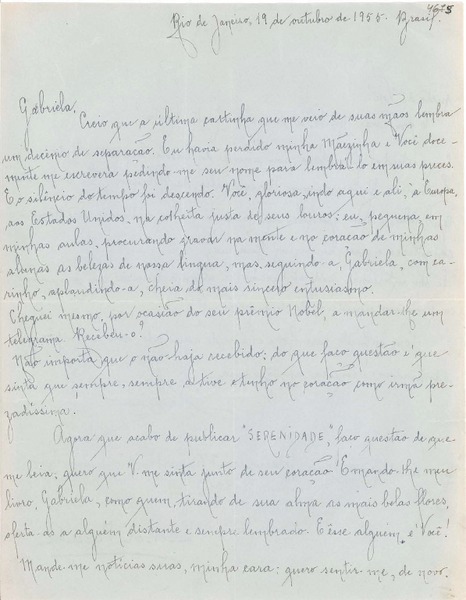 4675
Rio de Janeiro, 19 de outubro de 1955. Brasil.
Gabriela,
Creio que a última cartinha que me veio de suas mãos lembra
um decimo de separação. Eu havia perdido minha Mãizinha e Você doce-
mente me escrevera pedindo-me seu nome para lembrá-lo em suas preces.
E o silêncio do tempo foi descendo. Você, gloriosa, indo aqui e ali, à Europa,
aos Estados Unidos, na colheita justa de seus louros; eu, pequena, em
minhas aulas, procurando gravar na mente e no coração de minhas
alunas as belezas de nossa língua, mas, seguindo-a, Gabriela, com ca-
rinho, aplaudindo-a, cheia do mais sincero entusiasmo.
Cheguei mesmo, por ocasião do seu prêmio Nobel, a mandar-lhe um
telegrama. Recebeu-o?
Não importa que o não haja recebido; do que faço questão é que
sinta que sempre, sempre a tive e tenho no coração como irmã pre-
zadíssima.
Agora que acabo de publicar "SERENIDADE", faço questão de que
me leia; quero que V. me sinta junto de seu coração. E mando-lhe meu
livro, Gabriela, como quem, tirando de sua alma as mais belas flores,
oferta-as a alguém distante e sempre lembrado. E êsse alguém é Você!
Mande-me notícias suas, minha cara; quero sentir-me, de novo,